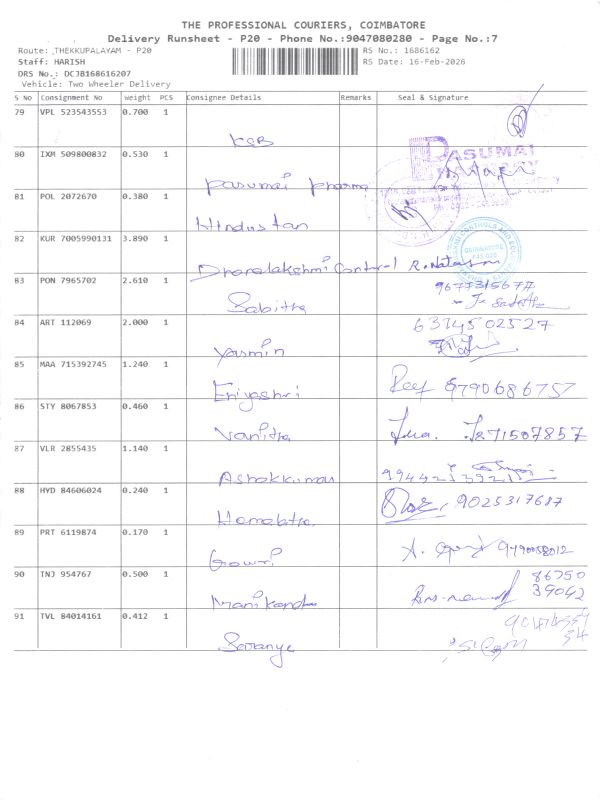 THE PROFESSIONAL COURIERS, COIMBATORE
Delivery Runsheet - P20 - Phone No.:9047080280 - Page No.:7
Route: THEKKUPALAYAM - P20
RS No.: 1686162
Staff: HARISH
RS Date: 16-Feb-2026
DRS No.: DCJB168616207
Vehicle: Two Wheeler Delivery
S No Consignment No Weight PCS Consignee Details Remarks Seal & Signature
79 VPL 523543553 0.700 1
KSB
80 IXM 509800832 0.530 1
PASUMAI
Pasumai Pharma
81 POL 2072670 0.380 1
Hindustan
82 KUR 7005990131 3.890 1
COIMBATORE
Dhanalakshmi Control R. Natasan
83 PON 7965702 2.610 1
Sabitha
84 ART 112069 2.000 1
6374502527
Yasmin
85 MAA 715392745 1.240 1
Eniyashri 9790686757
86 STY 8067853 0.460 1
Vanitha
87 VLR 2855435 1.140 1
Ashokkumar
88 HYD 84606024 0.240 1
9025317687
Hemalatha
89 PRT 6119874 0.170 1
Gowri 9790058012
90 TNJ 954767 0.500 1
86750
39042
Manikandan
91 TVL 84014161 0.412 1
Saranya